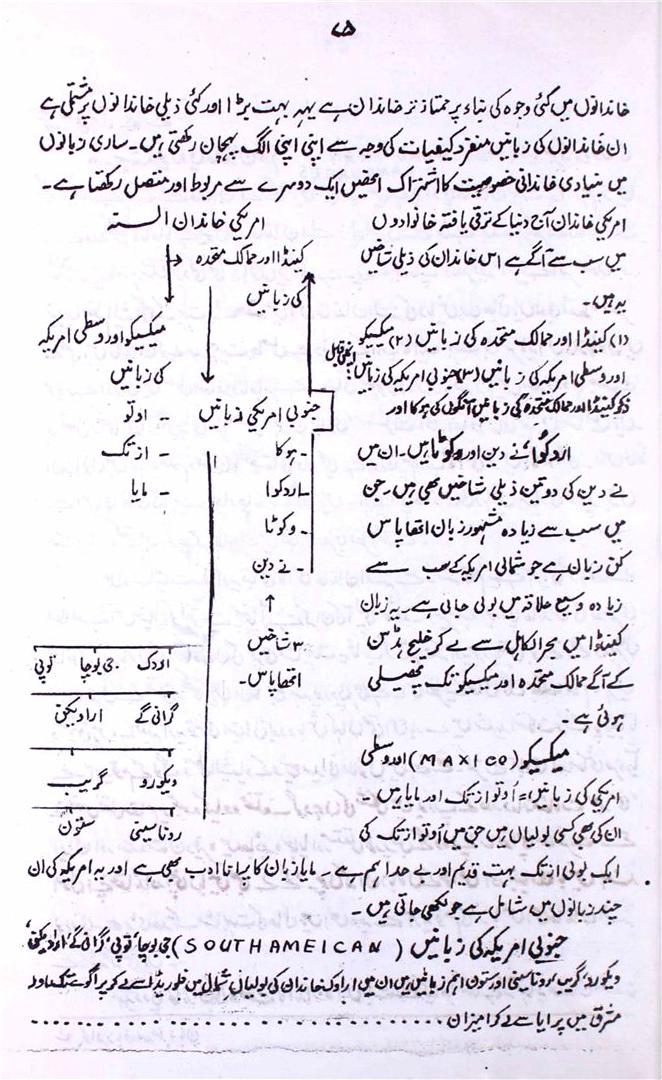 ۷۵
خاندانوں میں کئی وجوہ کی بناء پر ممتاز نز خاندان ہے یہہ بہت بڑا اور کئی ذیلی خاندانوں پر مشتمل ہے
ان خاندانوں کی زبانیں منفرد کیفیات کی وجہ سے اپنی اپنی الگ پہچان رکھتی ہیں۔ ساری زبانوں
میں بنیادی خاندانی خصوصیت کا اشتراک انھیں ایک دوسرے سے مربوط اور متصل رکھتا ہے۔
امریکی خاندان آج دنیا کے ترقی یافتہ خانوادوں
میں سب سے آگے ہے اس خاندان کی ذیلی شاخیں
یہ ہیں۔
(۱) کینڈا اور ممالک متحدہ کی زبانیں (۲) میکسیکو
اور وسطی امریکہ کی زبانیں (۳) جنوبی امریکہ کی زبانیں
کینڈا اور ممالک متحدہ کی زبانیں ہوکا اور
اردکوا نے دین اور وکوٹا ہیں۔ ان میں
نے دین کی دو تین ذیلی شاخیں بھی ہیں۔ جن
میں سب سے زیادہ مشہور زبان اتھاپاس
کن زبان ہے جو شمالی امریکہ کے سب سے
زیادہ وسیع علاقہ میں بولی جاتی ہے۔ یہ زبان
کینڈا میں بحرالکاہل سے لے کر خلیج ہڈسن
کے آگے ممالک متحدہ اور میکسیکو تک پھیلی
ہوئی ہے۔
امریکی خاندان السنہ
کینڈا اور ممالک متحدہ
کی زبانیں
میکسیکو اور وسطی امریکہ
کی زبانیں
جنوبی امریکی زبانیں
۔ ہوکا
۔ اردکوا
۔ وکوٹا
۔ نے دین
۳ شاخیں
اتھاپاس۔
۔ اوٹو
۔ ازتک
۔ مایا
اودک ۔ جی بوچا توپی
گرائی گے ارادیکن
ویکورو گریب
رونامینی سفون
میکسیکو (MAXICO) اور وسطی
امریکی کی زبانیں: اُوتو ازتک اور مایا ہیں
ان کی بھی کئی بولیاں ہیں جن میں اُوتو ازتک کی
ایک بولی ازتک بہت قدیم اور بے حد اہم ہے۔ مایا زبان کا پرانا ادب بھی ہے اور یہ امریکہ کی ان
چند زبانوں میں شامل ہے جو لکھی جاتی ہیں۔
جنوبی امریکہ کی زبانیں (SOUTHAMEICAN) جی بوچا، توپی، گرائی گے،
ویکورو، گریب، رونامینی اور ستون اہم زبانیں ہیں ان میں اراوک خاندان کی بولیاں شمال میں فلوریڈا سے لے کر پراگوے تک اور
مشرق میں پرایا سے لے کر امیزان